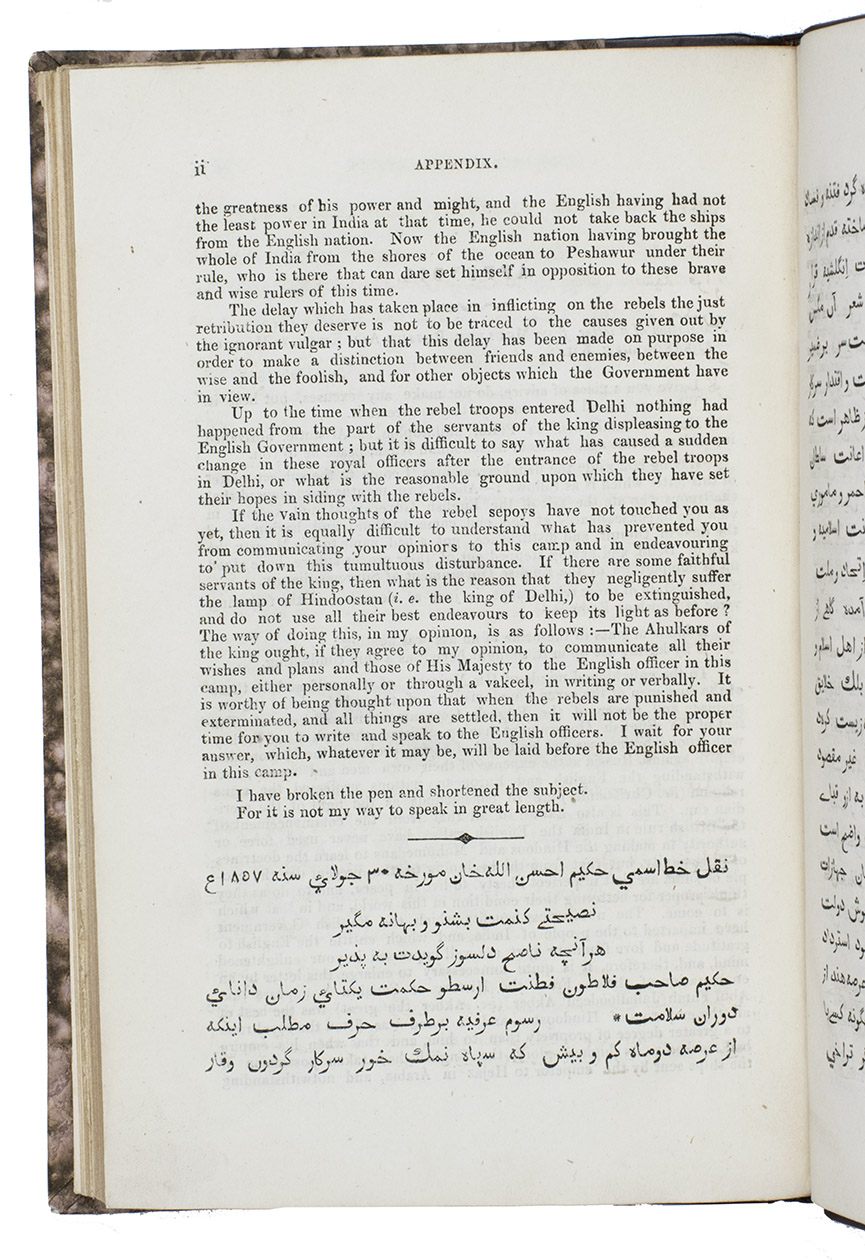 ii
APPENDIX.
the greatness of his power and might, and the English having had not
the least power in India at that time, he could not take back the ships
from the English nation. Now the English nation having brought the
whole of India from the shores of the ocean to Peshawur under their
rule, who is there that can dare set himself in opposition to these brave
and wise rulers of this time.
The delay which has taken place in inflicting on the rebels the just
retribution they deserve is not to be traced to the causes given out by
the ignorant vulgar ; but that this delay has been made on purpose in
order to make a distinction between friends and enemies, between the
wise and the foolish, and for other objects which the Government have
in view.
Up to the time when the rebel troops entered Delhi nothing had
happened from the part of the servants of the king displeasing to the
English Government ; but it is difficult to say what has caused a sudden
change in these royal officers after the entrance of the rebel troops
in Delhi, or what is the reasonable ground upon which they have set
their hopes in siding with the rebels.
If the vain thoughts of the rebel sepoys have not touched you as
yet, then it is equally difficult to understand what has prevented you
from communicating your opiniors to this camp and in endeavouring
to put down this tumultuous disturbance. If there are some faithful
servants of the king, then what is the reason that they negligently suffer
the lamp of Hindoostan (i. e. the king of Delhi,) to be extinguished,
and do not use all their best endeavours to keep its light as before ?
The way of doing this, in my opinion, is as follows :—The Ahulkars of
the king ought, if they agree to my opinion, to communicate all their
wishes and plans and those of His Majesty to the English officer in this
camp, either personally or through a vakeel, in writing or verbally. It
is worthy of being thought upon that when the rebels are punished and
exterminated, and all things are settled, then it will not be the proper
time for you to write and speak to the English officers. I wait for your
answer, which, whatever it may be, will be laid before the English officer
in this camp.
I have broken the pen and shortened the subject.
For it is not my way to speak in great length.
نقل خط اسمي حکيم احسن الله خان مورخه ۳۰ جولاي سنه ۱۸۵۷ع
نصيحتے کنمت بشنو و بهانه مگير
هرآنچه ناصح دلسوز گويدت به پذير
حکيم صاحب فلاطون فطنت ارسطو حکمت يکتاي زمان داناي
دوران سلامت * رسوم عرفيه برطرف حرف مطلب اينکه
از عرصه دوماه کم و بيش که سپاه نمك خور سرکار گردون وقار